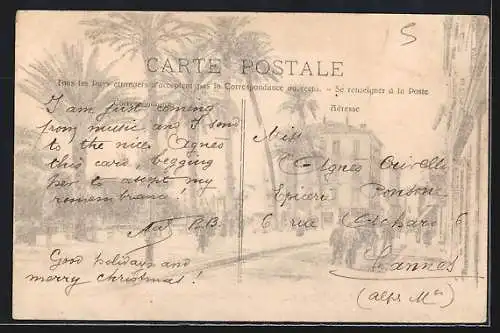 5
CARTE POSTALE
Tous les Pays étrangers n'acceptent pas la Correspondance au recto. - Se renseigner à la Poste
Correspondance
Adresse
I am just coming
from music and I send
to the nice Agnes
this card, begging
her to accept my
remembrance!
P.B.
Good holidays and
merry christmas!
Miss
Agnes
Epicerie
6 rue 6
Cannes
(alps Mes)